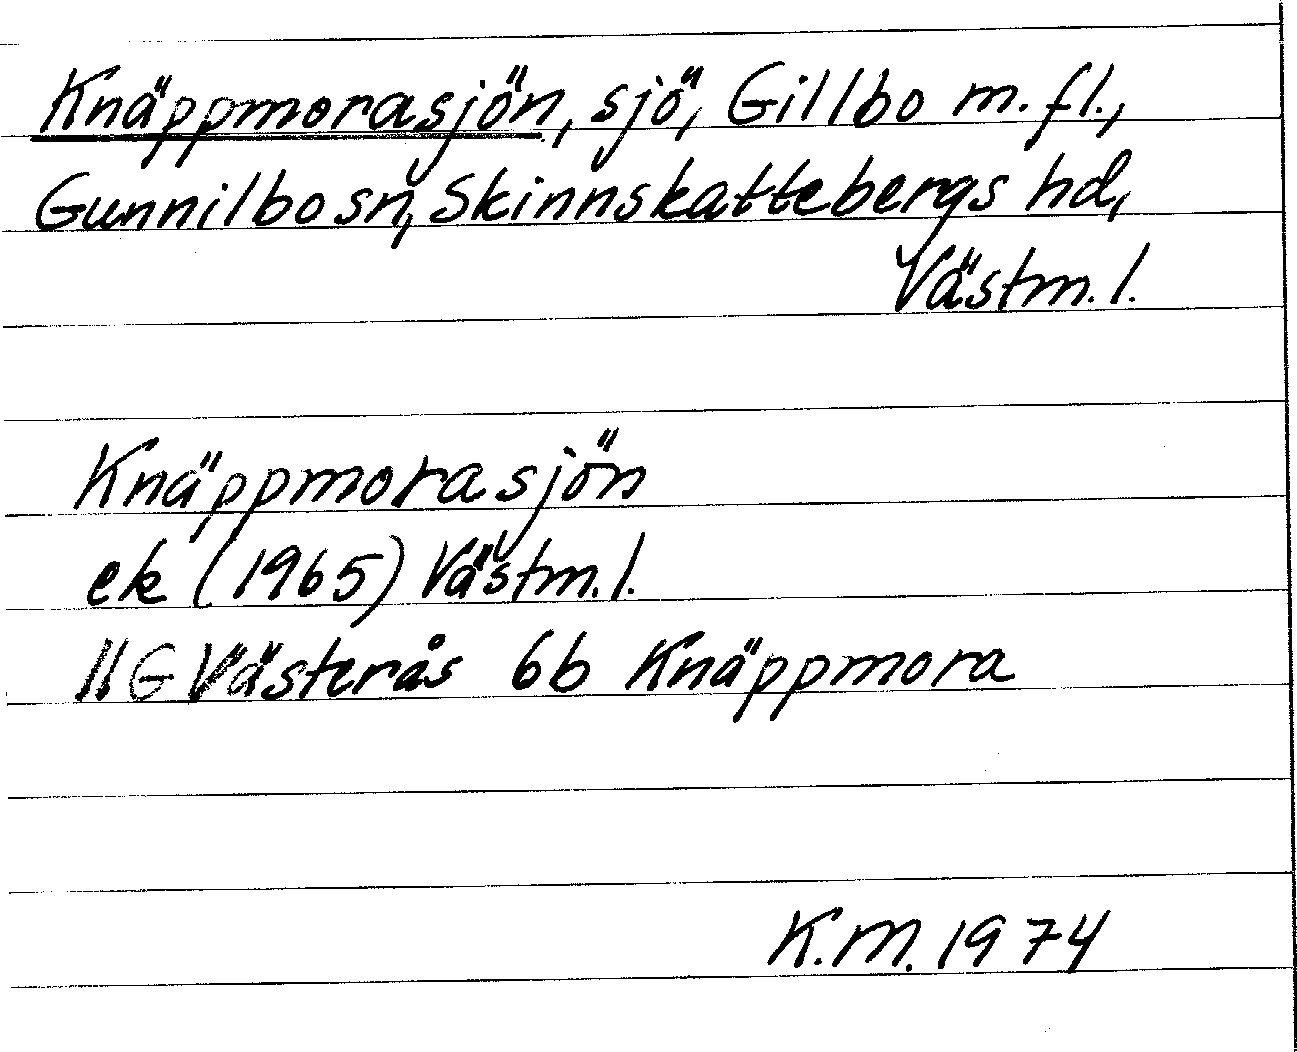 Knäppmorasjön, sjö, Gillbo m.fl.,
Gunnilbo sn, Skinnskattebergs hd,
Västm.l.
Knäppmorasjön
ek (1965) Västm.l.
11G Västerås 6b Knäppmora
K.M. 1974